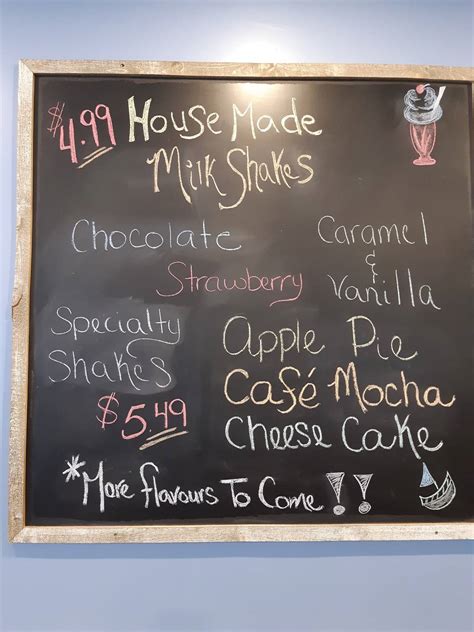 $4.99 House Made
Milk Shakes
Chocolate
Caramel
&
Vanilla
Strawberry
Specialty
Shakes
$5.49
Apple Pie
Café Mocha
Cheese Cake
*More flavours To Come!!